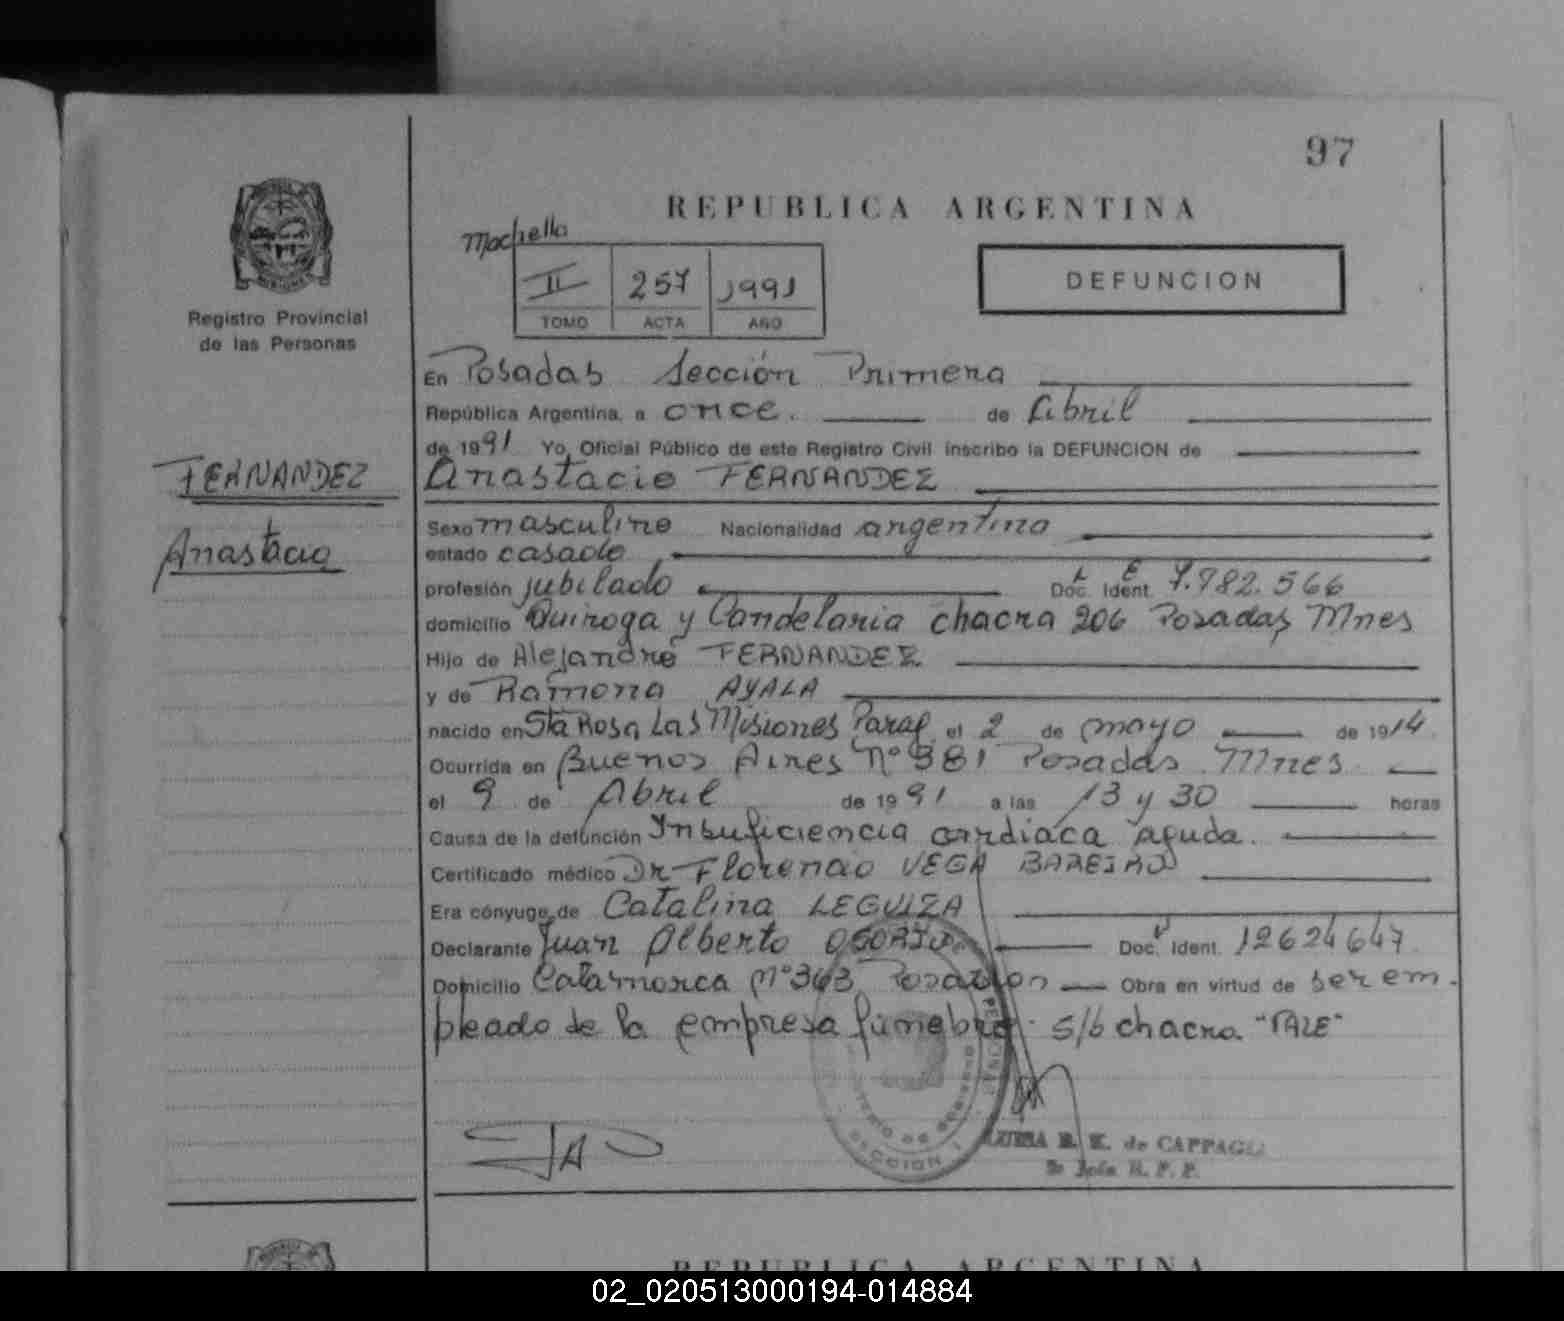 97
REPUBLICA ARGENTINA
Machella
II 257 1991
TOMO ACTA AÑO
DEFUNCION
Registro Provincial
de las Personas
FERNANDEZ
Anastacio
En Posadas Sección Primera
República Argentina, a once. de Abril
de 1991 Yo, Oficial Público de este Registro Civil inscribo la DEFUNCION de
Anastacio FERNANDEZ
Sexo masculino Nacionalidad argentina
estado casado
profesión jubilado Doc. Ident. L E 7.982.566
domicilio Quiroga y Candelaria chacra 206 Posadas Mnes
Hijo de Alejandro FERNANDEZ
y de Ramona AYALA
nacido en Sta Rosa Las Misiones Parag el 2 de mayo de 1914
Ocurrida en Buenos Aires Nº 981 Posadas Mnes
el 9 de Abril de 1991 a las 13 y 30 horas
Causa de la defunción Insuficiencia cardiaca aguda.
Certificado médico Dr Florencio VEGA BAREIRO
Era cónyuge de Catalina LEGUIZA
Declarante Juan Alberto OSORIO Doc. Ident. U 12624647
Domicilio Catamarca Nº 363 Posadas Obra en virtud de ser em-
pleado de la empresa fúnebre. s/b chacra "VALE"
SECCION 1
de CAPPAGLI
R. P. P.
REPUBLICA ARGENTINA
02_020513000194-014884